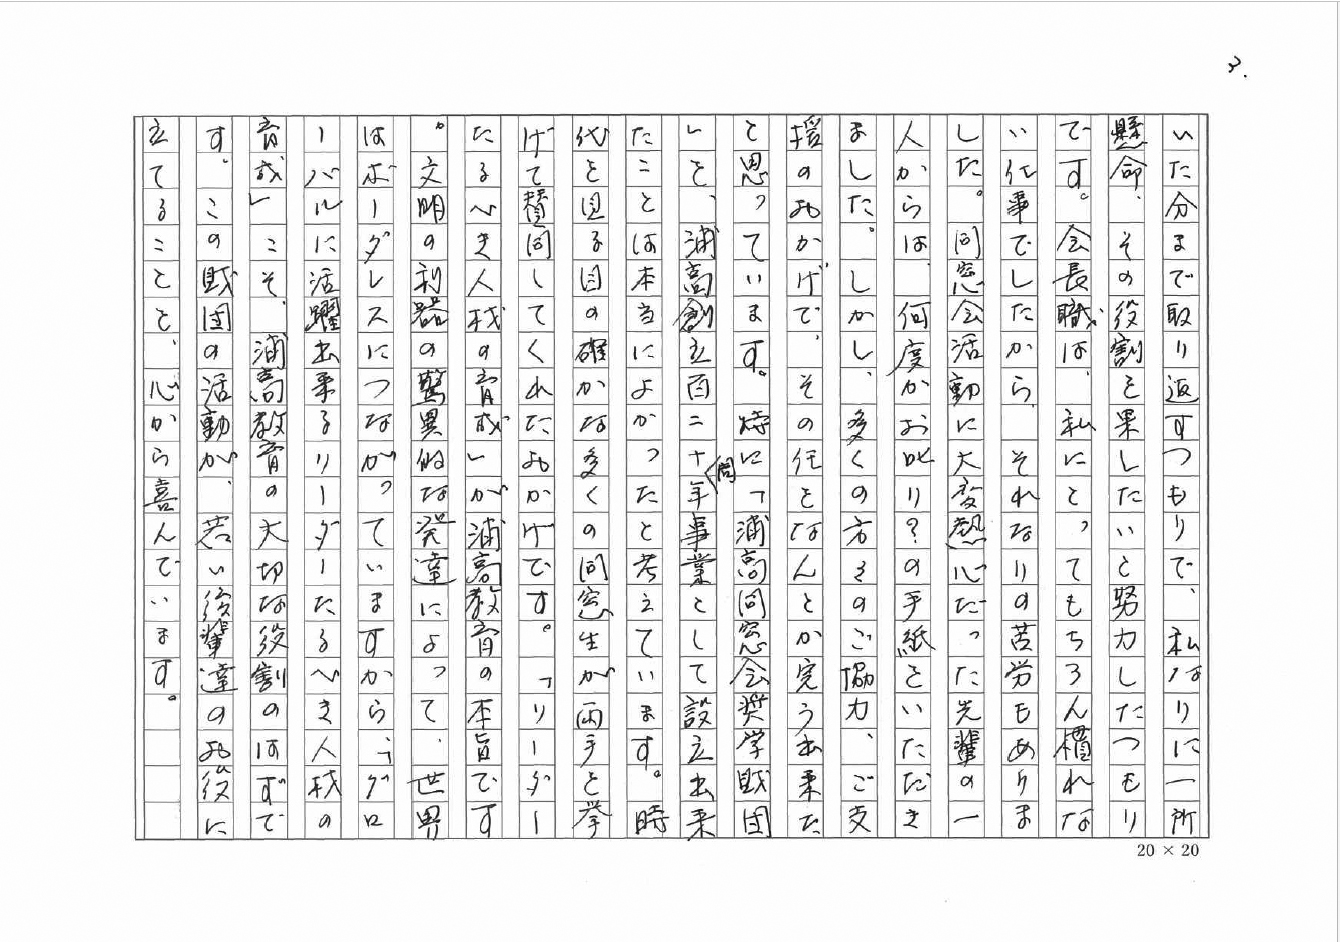 3.
いた分まで取り返すつもりで、私なりに一所
懸命、その役割を果したいと努力したつもり
です。会長職は、私にとってもちろん慣れな
い仕事でしたから、それなりの苦労もありま
した。同窓会活動に大変熱心だった先輩の一
人からは、何度かお叱り?の手紙をいただき
ました。しかし、多くの方々のご協力、ご支
援のおかげで、その任をなんとか完う出来た
と思っています。特に「浦高同窓会奨学財団
」を、浦高創立百二十周年事業として設立出来
たことは本当によかったと考えています。時
代を見る目の確かな多くの同窓生が両手を挙
げて賛同してくれたおかげです。「リーダー
たるべき人材の育成」が浦高教育の本旨です
。文明の利器の驚異的な発達によって、世界
はボーダレスにつながっていますから、「グロ
ーバルに活躍出来るリーダーたるべき人材の
育成」こそ、浦高教育の大切な役割のはずで
す。この財団の活動が、若い後輩達のお役に
立てることを、心から喜んでいます。
20 × 20